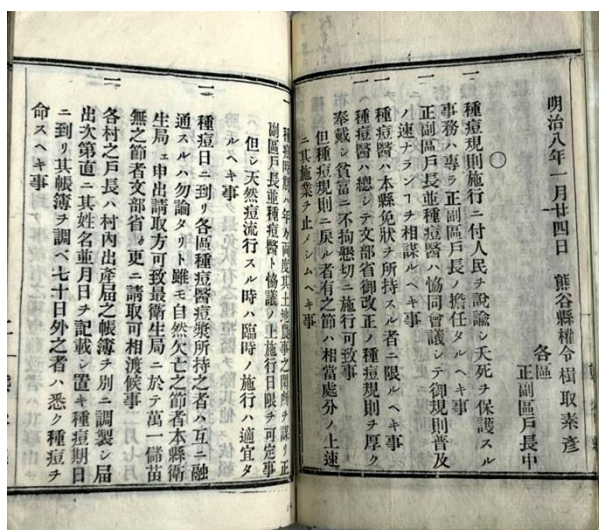 明治八年一月廿四日　熊谷縣權令楫取素彦
各區
正副區戶長中
〇
一種痘規則施行ニ付人民ヲ說諭シ夭死ヲ保護スル
事務ハ專ラ正副區戶長ノ擔任タルヘキ事
一正副區戶長並種痘醫ハ協同會議シテ御規則普及
ノ速ナランヿヲ相謀ルヘキ事
一種痘醫ハ本縣免狀ヲ所持スル者ニ限ルヘキ事
一種痘醫ハ總シテ文部省御改正ノ種痘規則ヲ厚ク
奉戴シ貧富ニ不拘懇切ニ施行可致事
但種痘規則ニ戾ル者有之節ハ相當處分ノ上速
ニ其施業ヲ止メシムヘキ事
一種痘時期ハ年々兩度其土地農事之閑際ヲ謀リ正
副區戶長並種痘醫ト協議ノ上施行日限ヲ可定事
但シ天然痘流行スル時ハ臨時ノ施行ハ適宜タ
ルヘキ事
一種痘日ニ到リ各區種痘醫痘漿所持之者ハ互ニ融
通スルハ勿論タリト雖モ自然欠亡之節者本縣衛
生局ェ申出請取方可致最衛生局ニ於テ萬一儲苗
無之節者文部省ゟ更ニ請取可相渡候事
一各村之戶長ハ村內出產屆之帳簿ヲ別ニ調製シ屆
出次第直ニ其姓名並月日ヲ記載シ置キ種痘期日
ニ到リ其帳簿ヲ調ベ七十日外之者ハ悉ク種痘ヲ
命スヘキ事